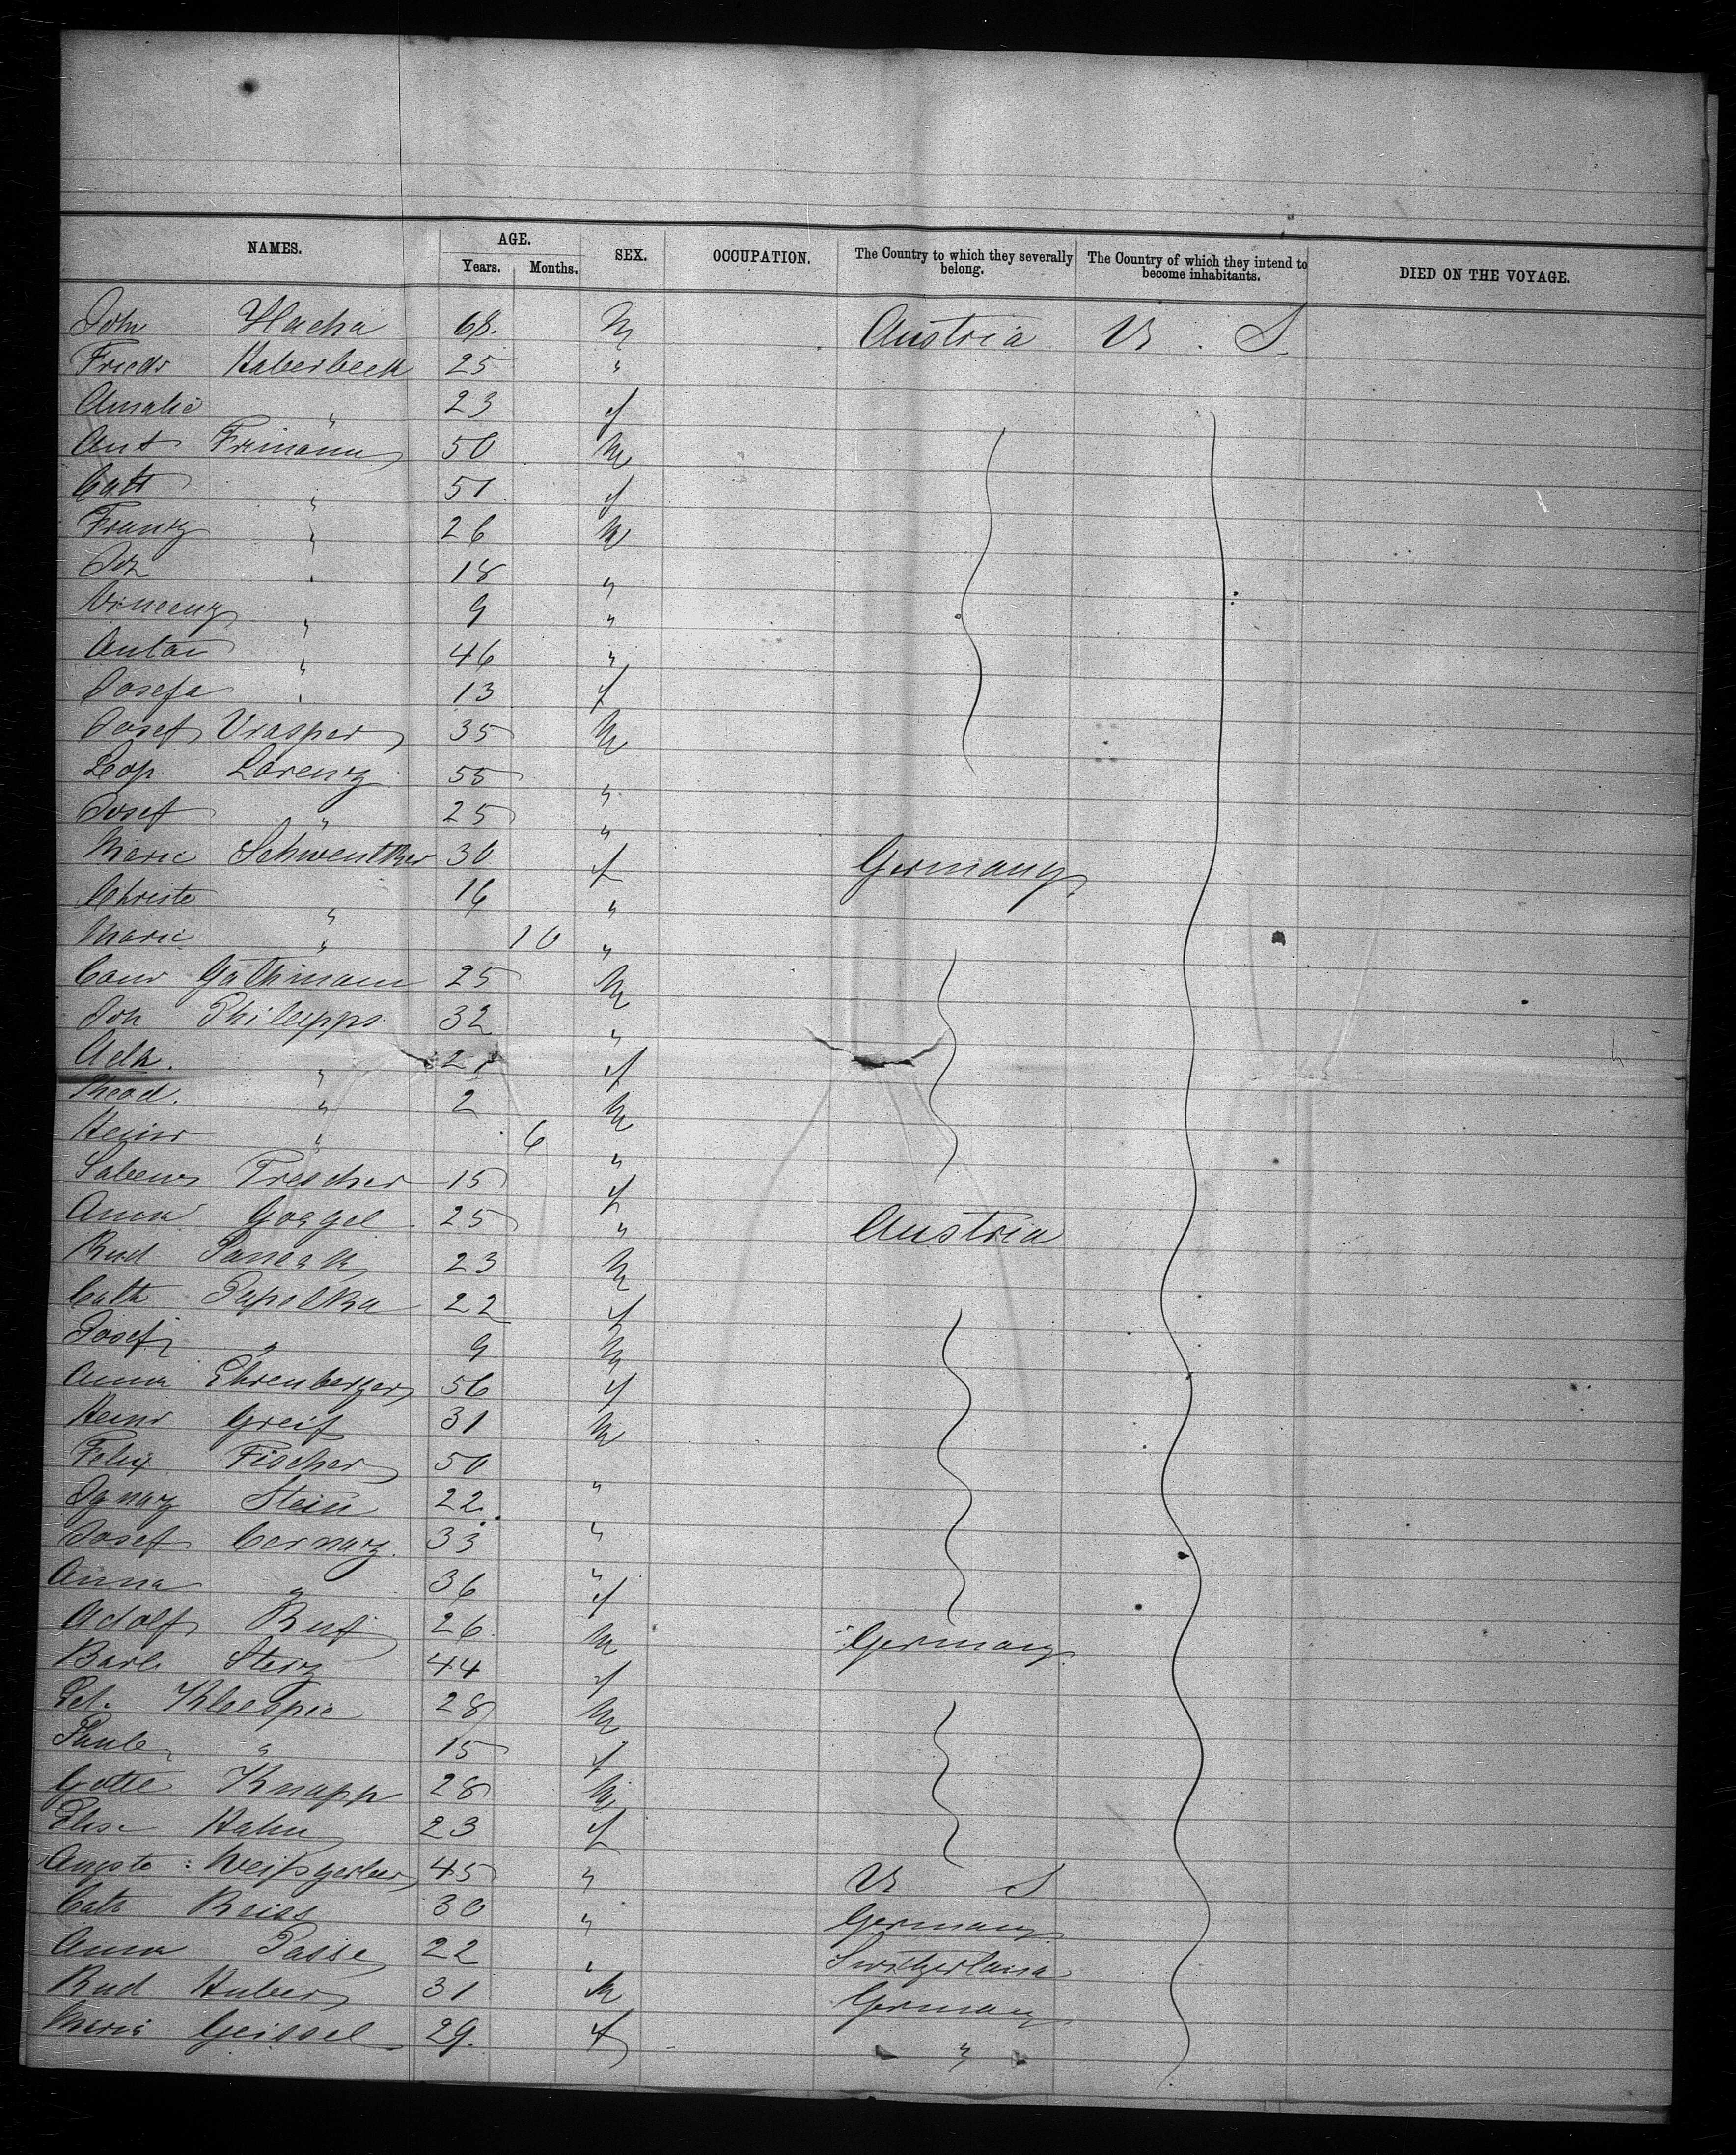 NAMES. AGE. Years. Months. SEX. OCCUPATION. The Country to which they severally belong. The Country of which they intend to become inhabitants. DIED ON THE VOYAGE.
John Hacha 68. M Austria U. S.
Friedr Haberbeck 25 "
Amalie " 23 f
Ant Frimann 50 M
Cath " 51 f
Franz " 26 M
Jos " 18 "
Vincenz " 9 "
Anton " 46 "
Josefa " 13 f
Josef Vrasper 35 M
Leop Lorenz 55 "
Josef " 25 "
Marie Schwenther 30 f Germany
Christe " 16 "
Marie " 10 "
Conr Gathmann 25 M
Joh Philipps 32 "
Adh. " 21 f
Thead. " 2 M
Heinr " 6 "
Trescher 15 f
Anna Goegel 25 " Austria
Rud Paneck 23 M
Cath Papelka 22 f
Josef " 9 M
Anna Ehrenberger 56 f
Heinr Greif 31 M
Felix Fischer 50 "
Ignaz Stein 22. "
Josef Cernaz. 33 "
Anna " 36 f
Adolf Ruf 26 M Germany
Barb Sterz 44 f
28 M
" 15 f
Gotte Knapp 28 M
Elise Hahn 23 f
Augste Weißgerber 45 " U S
Cath Reiss 30 " Germany
Anna Passe 22 " Switzerland
Rud Huber 31 M Germany
Marie Geissel 29. f "